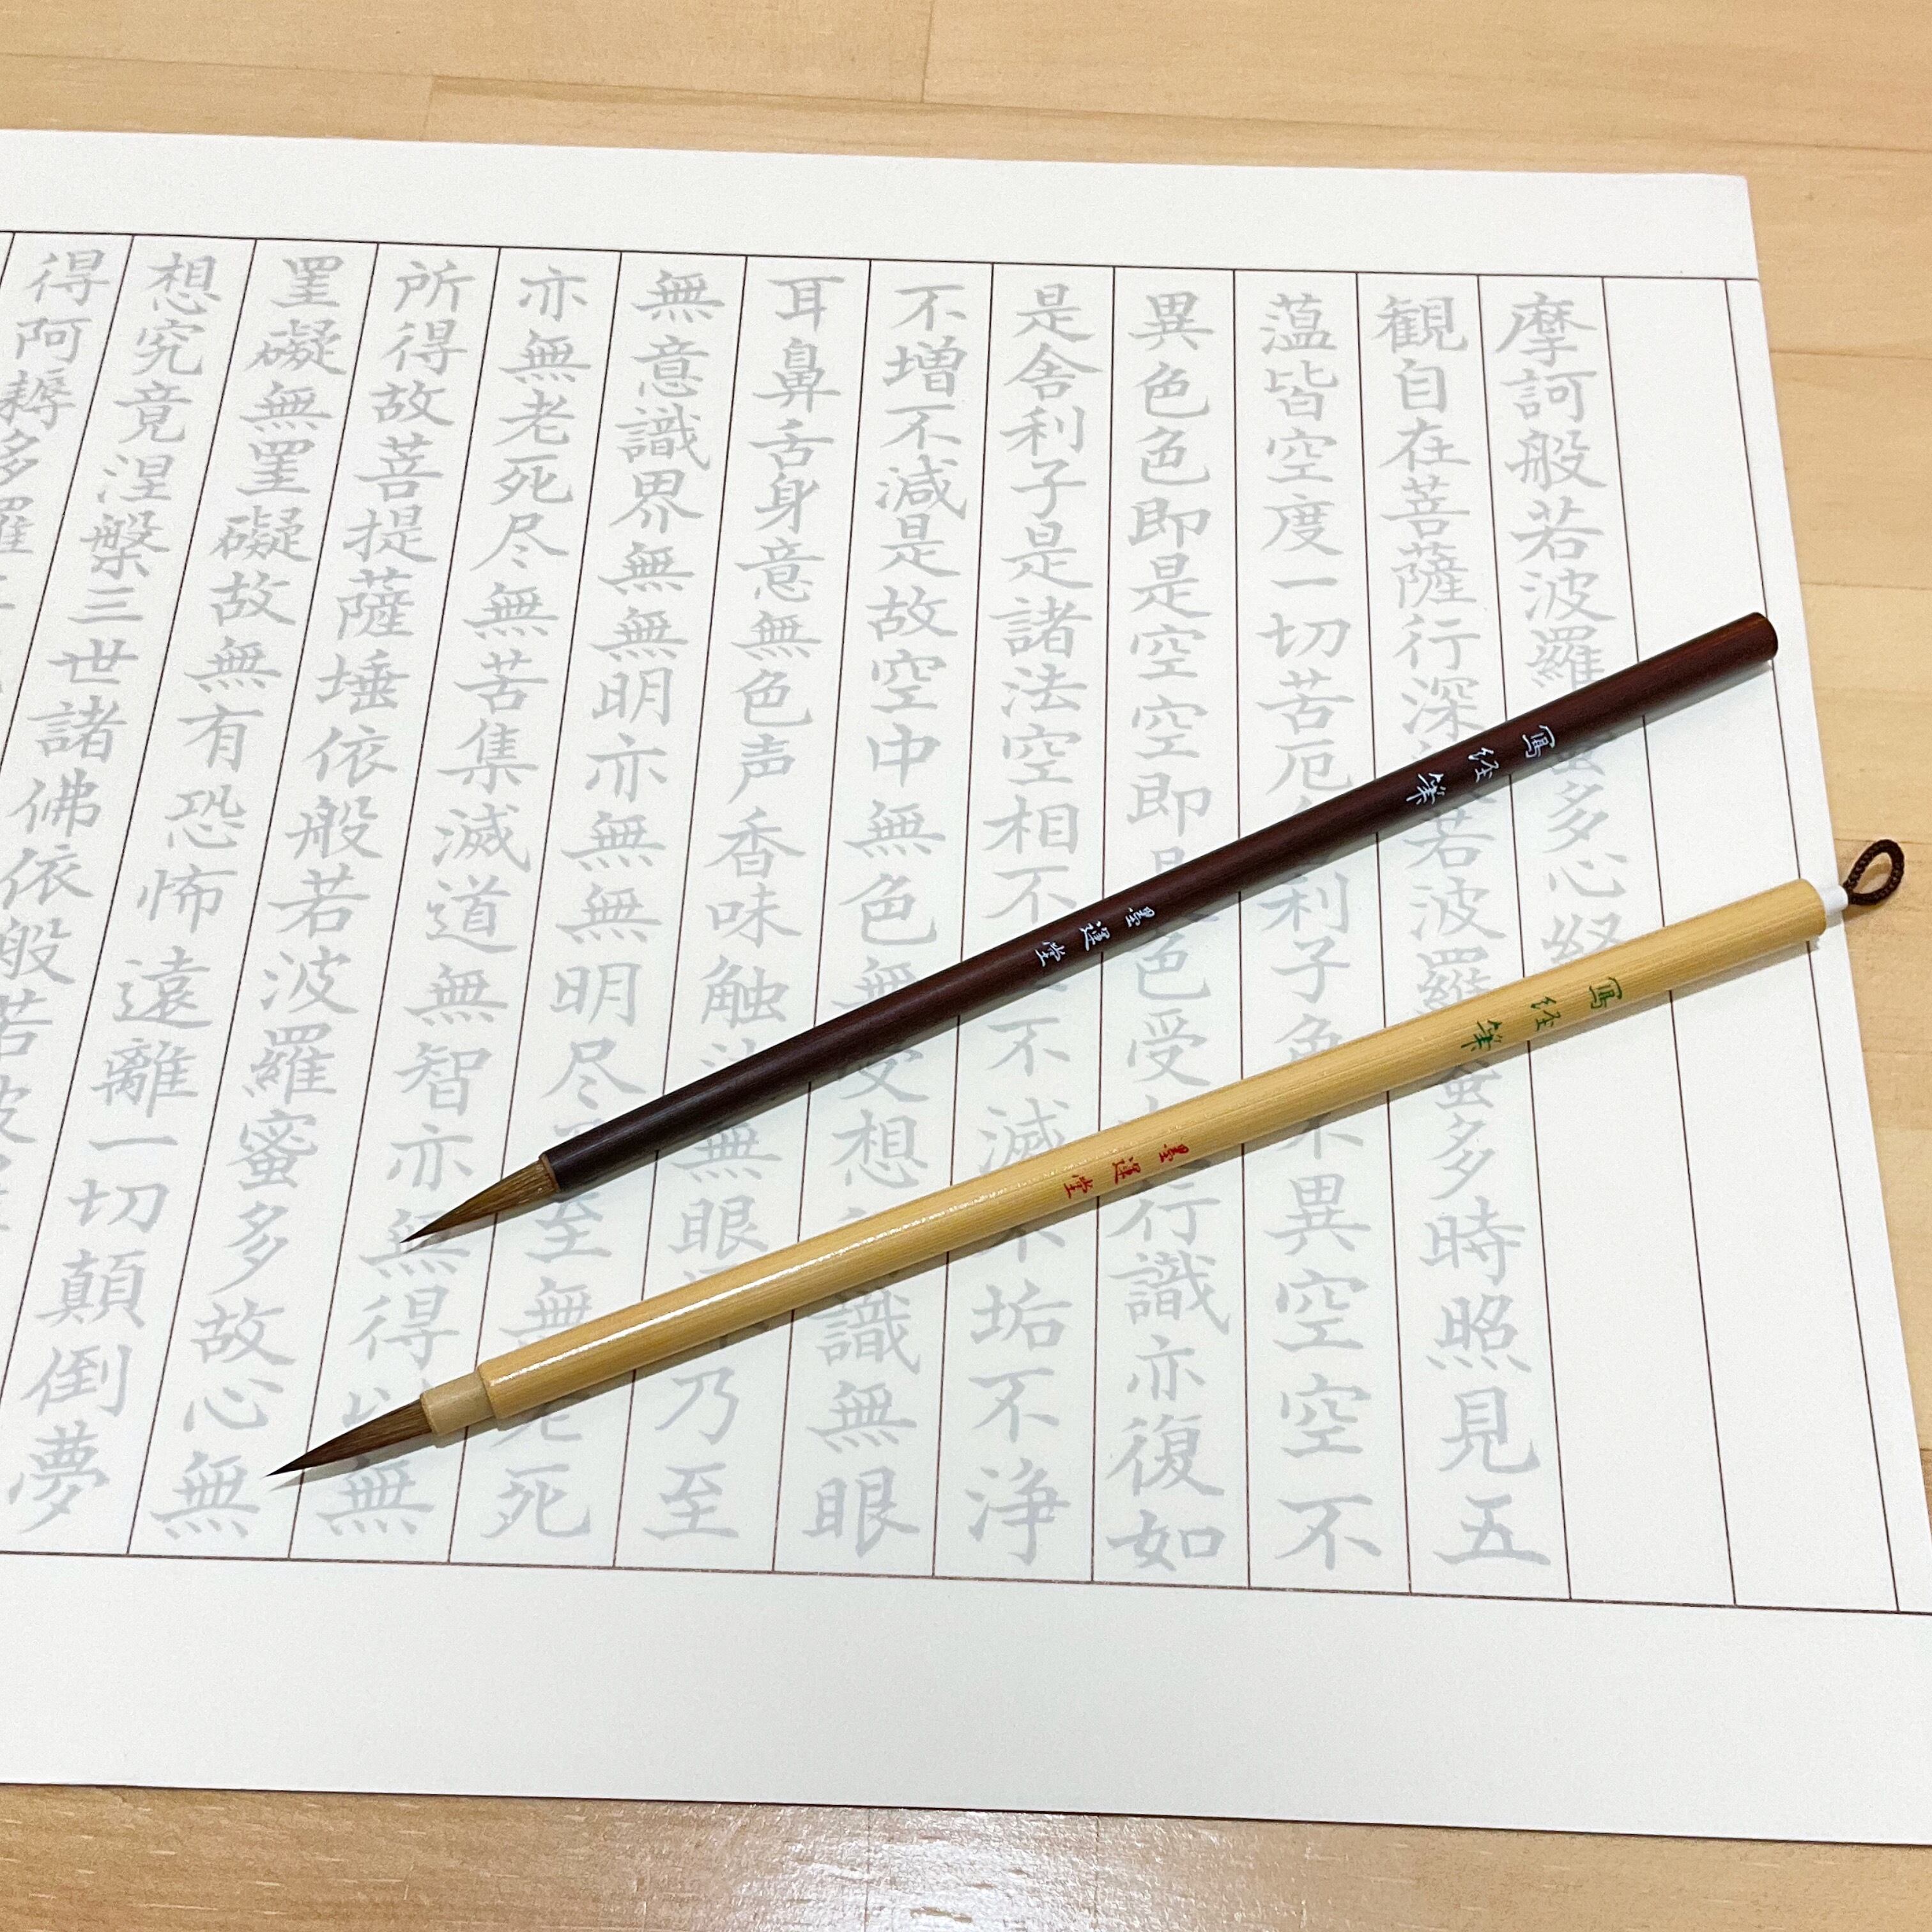 摩訶般若波羅多心経
観自在菩薩行深若波羅蜜多時照見五
薀皆空度一切苦厄利子色不異空空不
異色色即是空空即是色受行識亦復如
是舎利子是諸法空相不不滅不垢不浄
不増不減是故空中無色無受想識無眼
耳鼻舌身意無色声香味触法無眼界乃至
無意識界無無明亦無無明尽至無老死
亦無老死尽無苦集滅道無智亦無得以無
所得故菩提薩埵依般若波羅蜜多故心無
罣礙無罣礙故無有恐怖遠離一切顛倒夢
想究竟涅槃三世諸佛依般若波
得阿耨多羅
寫経筆
墨運堂
寫経筆
墨運堂